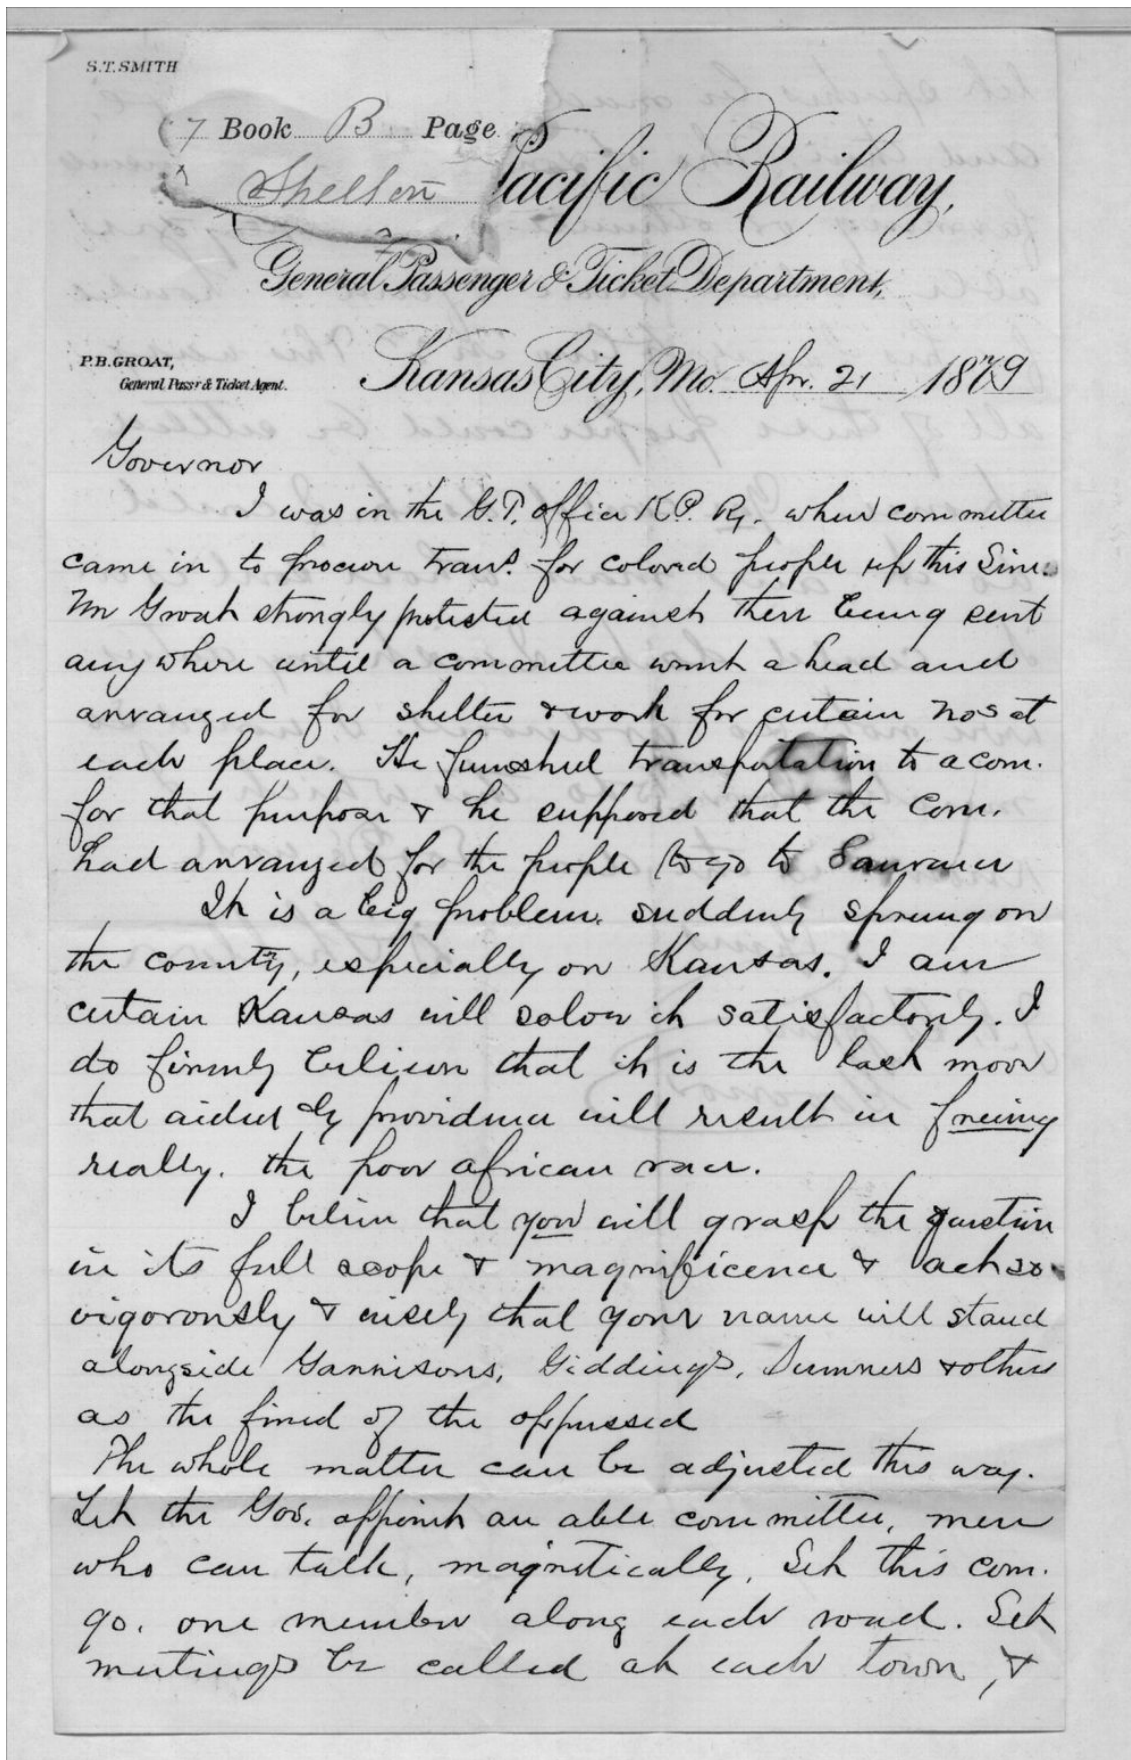 S.T. SMITH
7 Book B Page 5
Shelton Pacific Railway,
General Passenger & Ticket Department,
P. B. GROAT,
General Pass'r & Ticket Agent.
Kansas City, Mo. Apr. 21 1879
Governor
I was in the G.T. office K.P. Ry. when committee
came in to procure tran's. for colored people up this Line.
Mr Groat strongly protested against their being sent
any where until a committee went ahead and
arranged for shelter & work for certain nos at
each place. He furnished transportation to a com.
for that purpose & he supposed that the Com.
had arranged for the people to go to
It is a big problem. suddenly sprung on
the country, especially on Kansas. I am
certain Kansas will solve it satisfactorily. I
do firmly believe that it is the last move
that aided by providence will result in freeing
really. the poor african race.
I believe that you will grasp the question
in its full scope & magnificence & act so
vigorously & wisely that your name will stand
alongside Garrisons, Giddings, Sumners & others
as the friend of the oppressed
The whole matter can be adjusted this way.
Let the Gov. appoint an able committee, men
who can talk, magnetically. Let this com.
go. one member along each road. Let
meetings be called at each town, &